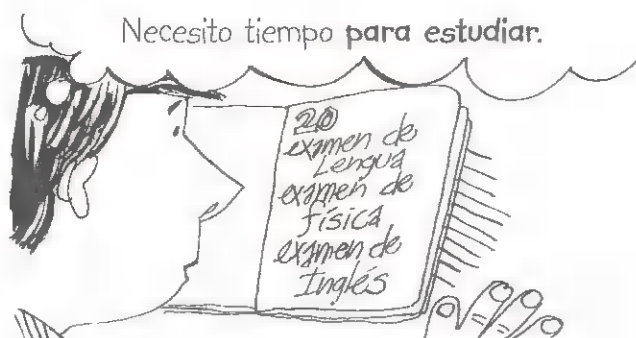 Necesito tiempo para estudiar.
20
examen de
Lengua
examen de
física
examen de
Inglés